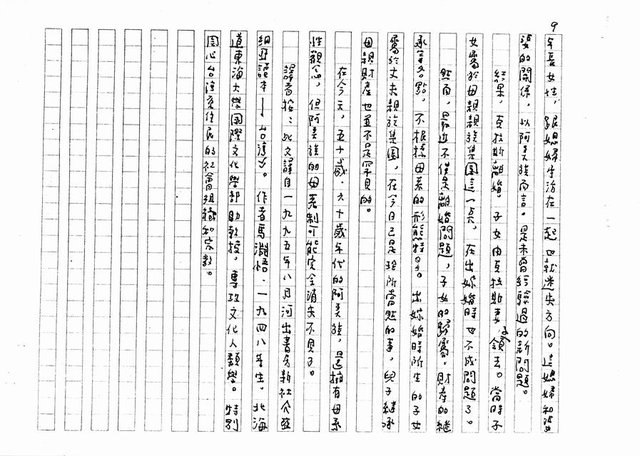 9
年長女性，跟媳婦生活在一起也就迷失方向。這媳婦和婆
婆的關係，以阿美族而言，是未曾經驗過的新問題。
結果，克拉斯離婚。子女由克拉斯妻子領去。當時子
女屬於母親親族集團這一點，在出嫁婚時也不成問題了。
然而，最近不僅是離婚問題，子女的歸屬、財產的繼
承等各點，不根據母系的形態特多。出嫁婚時所生的子女
屬於丈夫親族集團，在今日已是理所當然的事，兒子繼承
母親財產也並不是罕見的。
在今天，五十歲、六十歲年代的阿美族，還擁有母系
性觀念，但阿美族的母系制可能完全消失不見了。
譯者按：此文譯自一九九五年八月河出書房新社介亞
細亞讀本——台灣》。作者馬淵悟，一九四八年生，北海
道東海大學國際文化學部助教授，專攻文化人類學。特別
關心台灣原住民的社會組織和宗教。